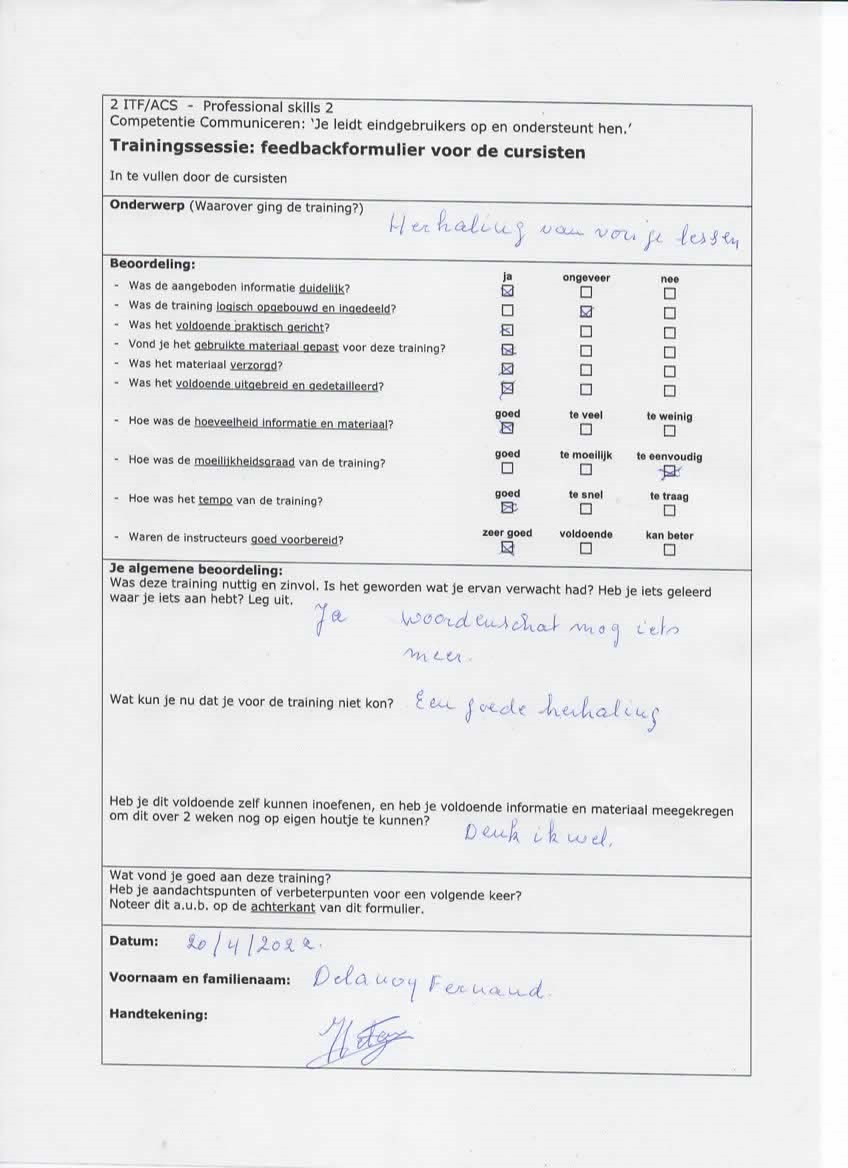 2 ITF/ACS - Professional skills 2
Competentie Communiceren: ‘Je leidt eindgebruikers op en ondersteunt hen.’
Trainingssessie: feedbackformulier voor de cursisten
In te vullen door de cursisten
Onderwerp (Waarover ging de training?) Herhaling van vorige lessen
Beoordeling: ja ongeveer nee
- Was de aangeboden informatie duidelijk? ☒ ☐ ☐
- Was de training logisch opgebouwd en ingedeeld? ☐ ☒ ☐
- Was het voldoende praktisch gericht? ☒ ☐ ☐
- Vond je het gebruikte materiaal gepast voor deze training? ☒ ☐ ☐
- Was het materiaal verzorgd? ☒ ☐ ☐
- Was het voldoende uitgebreid en gedetailleerd? ☒ ☐ ☐
goed te veel te weinig
- Hoe was de hoeveelheid informatie en materiaal? ☒ ☐ ☐
goed te moeilijk te eenvoudig
- Hoe was de moeilijkheidsgraad van de training? ☐ ☐ ☒
goed te snel te traag
- Hoe was het tempo van de training? ☒ ☐ ☐
zeer goed voldoende kan beter
- Waren de instructeurs goed voorbereid? ☒ ☐ ☐
Je algemene beoordeling:
Was deze training nuttig en zinvol. Is het geworden wat je ervan verwacht had? Heb je iets geleerd
waar je iets aan hebt? Leg uit.
Ja woordenschat mog iets
meer.
Wat kun je nu dat je voor de training niet kon? Een goede herhaling
Heb je dit voldoende zelf kunnen inoefenen, en heb je voldoende informatie en materiaal meegekregen
om dit over 2 weken nog op eigen houtje te kunnen?
Denk ik wel.
Wat vond je goed aan deze training?
Heb je aandachtspunten of verbeterpunten voor een volgende keer?
Noteer dit a.u.b. op de achterkant van dit formulier.
Datum: 20/4/2022.
Voornaam en familienaam: Delanoy Fernand.
Handtekening: